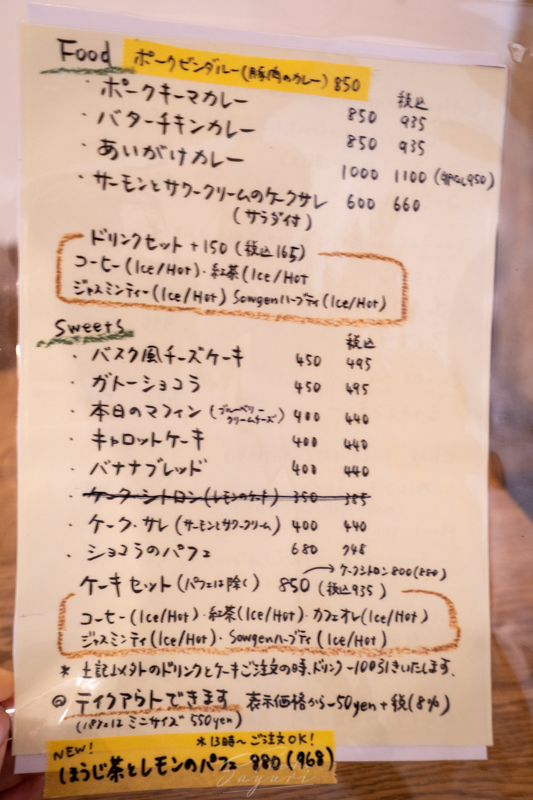 Food ポークビンダルー(豚肉のカレー) 850
税込
・ポークキーマカレー 850 935
・バターチキンカレー 850 935
・あいがけカレー 1000 1100
・サーモンとサワークリームのケークサレ 600 660
(サラダ付)
ドリンクセット +150 (税込165)
コーヒー(Ice/Hot)・紅茶(Ice/Hot
ジャスミンティー(Ice/Hot) Sowgenハーブティ(Ice/Hot)
Sweets
税込
・バスク風チーズケーキ 450 495
・ガトーショコラ 450 495
・本日のマフィン(ブルーベリークリームチーズ) 400 440
・キャロットケーキ 400 440
・バナナブレッド 400 440
・ケークシトロン(レモンのケーキ) 350 385
・ケーク・サレ(サーモンとサワークリーム) 400 440
・ショコラのパフェ 680 748
→ケークシトロン800(880)
ケーキセット(パフェは除く) 850 (税込935)
コーヒー(Ice/Hot)・紅茶(Ice/Hot)・カフェオレ(Ice/Hot)
ジャスミンティ(Ice/Hot)・Sowgenハーブティ(Ice/Hot)
* 上記以外のドリンクとケーキご注文の時、ドリンク-100引きいたします.
@ テイクアウトできます 表示価格から-50yen+税(8%)
(パフェは ミニサイズ 550yen)
NEW! *13時〜ご注文OK!
ほうじ茶とレモンのパフェ 880 (968)
Sayuri